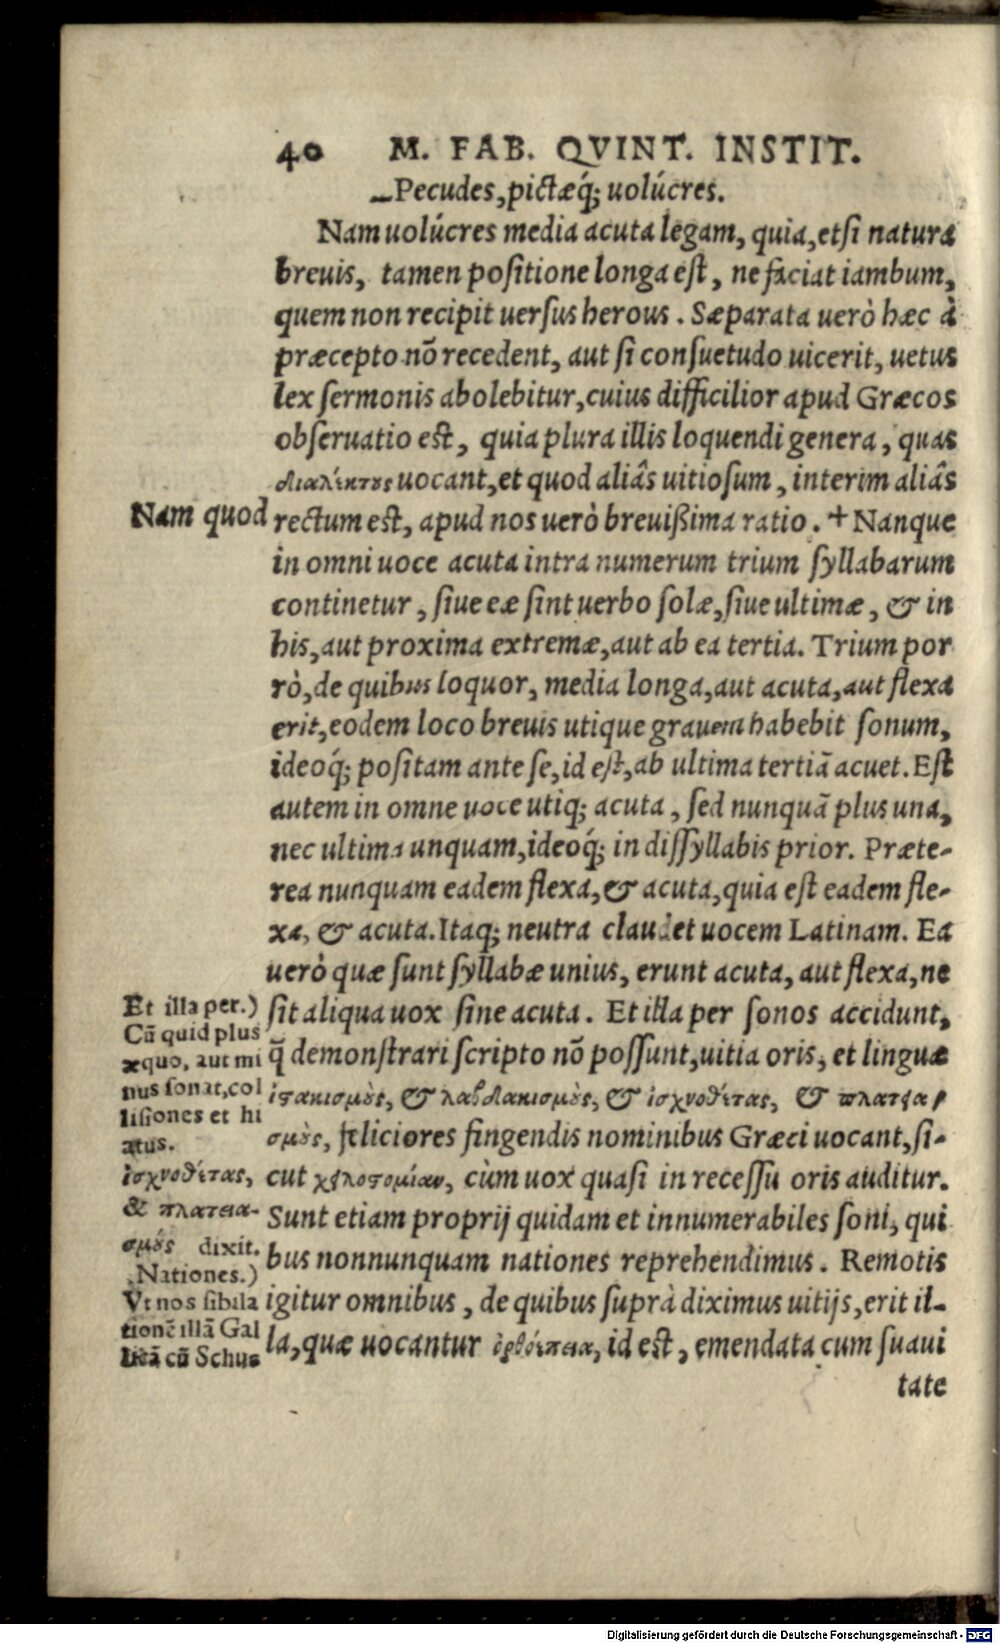 40 M. FAB. QVINT. INSTIT.
—Pecudes, pictæq́; uolúcres.
Nam uolúcres media acuta legam, quia, etsi natura
breuis, tamen positione longa est, ne faciat iambum,
quem non recipit uersus herous. Sæparata uerò hæc à
præcepto nõ recedent, aut si consuetudo uicerit, uetus
lex sermonis abolebitur, cuius difficilior apud Græcos
obseruatio est, quia plura illis loquendi genera, quas
διαλέκτους uocant, et quod aliâs uitiosum, interim aliâs
Nam quod
rectum est, apud nos uerò breuißima ratio. + Nanque
in omni uoce acuta intra numerum trium syllabarum
continetur, siue eæ sint uerbo solæ, siue ultimæ, & in
his, aut proxima extremæ, aut ab ea tertia. Trium por
rò, de quibus loquor, media longa, aut acuta, aut flexa
erit, eodem loco breuis utique grauem habebit sonum,
ideoq́; positam ante se, id est, ab ultima tertiã acuet. Est
autem in omne uoce utiq; acuta, sed nunquã plus una,
nec ultima unquam, ideoq́; in dissyllabis prior. Præte-
rea nunquam eadem flexa, & acuta, quia est eadem fle-
xa, & acuta. Itaq; neutra claudet uocem Latinam. Ea
uerò quæ sunt syllabæ unius, erunt acuta, aut flexa, ne
sit aliqua uox sine acuta. Et illa per sonos accidunt,
q̃ demonstrari scripto nõ possunt, uitia oris, et linguæ
ἰωτακισμοὺς, & λαβδακισμοὺς, & ἰσχνοθέτας, & πλατεια
σμοὺς, feliciores fingendis nominibus Græci uocant, si-
cut χειλοστομίαν, cùm uox quasi in recessu oris auditur.
Sunt etiam proprij quidam et innumerabiles soni, qui
bus nonnunquam nationes reprehendimus. Remotis
igitur omnibus, de quibus suprà diximus uitijs, erit il-
la, quæ uocantur ὀρθοέπεια, id est, emendata cum suaui
tate
Et illa per.)
Cũ quid plus
æquo, aut mi
nus sonat, col
lisiones et hi
atus.
ἰσχνοθέτας,
& πλατεια-
σμοὺς dixit.
Nationes.)
Vt nos sibila
tionẽ illã Gal
licã cũ Schus
Digitalisierung gefördert durch die Deutsche Forschungsgemeinschaft - DFG